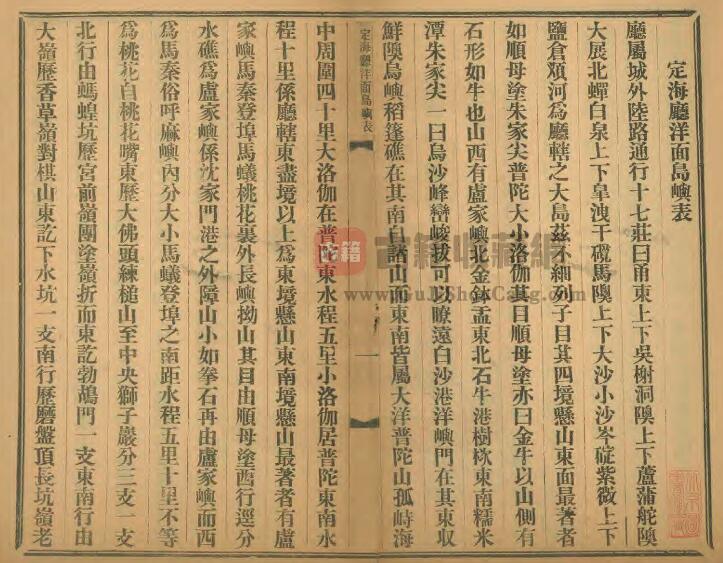 定海廳洋面島嶼表
廳屬城外陸路通行十七莊曰甬東上下吳榭洞隩上下蘆蒲舵隩
大展北蟬白泉上下皐洩干𥔲馬隩上下大沙小沙岑碇紫微上下
鹽倉頒河爲廳轄之大島茲不細列子目其四境懸山東面最著者
如順母塗朱家尖普陀大小洛伽其目順母塗亦曰金牛以山側有
石形如牛也山西有盧家嶼北金鉢盂東北石牛港樹栨東南糯米
潭朱家尖一曰烏沙峰巒峻拔可以瞭遠白沙港洋嶼門在其東収
鮮隩烏嶼稻篷礁在其南自諸山而東南皆屬大洋普陀山孤峙海
定海廳洋面島嶼表
一
中周圍四十里大洛伽在普陀東水程五里小洛伽居普陀東南水
程十里係廳轄東盡境以上爲東境懸山東南境懸山最著者有盧
家嶼馬秦登埠馬蟻桃花裏外長嶼拗山其目由順母塗西行逕分
水礁爲盧家嶼係沈家門港之外障山小如拳石再由盧家嶼而西
爲馬秦俗呼麻嶼內分大小馬蟻登埠之南距水程五里十里不等
爲桃花自桃花嘴東歷大佛頭練槌山至中央獅子巖分三支一支
北行由螞蝗坑歷宮前嶺團塗嶺折而東訖勃鴣門一支東南行由
大嶺歷香草嶺對棋山東訖下水坑一支南行歷磨盤頂長坑嶺老
古籍收藏網
www.GuJiShouCang.com